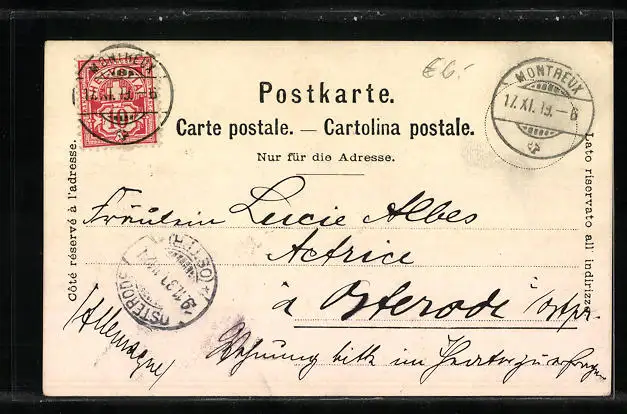 €6.-
MONTREUX
17.XI.19.-6
MONTREUX
17.XI.19.-6
10
Postkarte.
Carte postale. — Cartolina postale.
Nur für die Adresse.
Côté réservé à l'adresse.
Lato riservato all indirizzo.
Fräulein Lucie Albes
Actrice
à Osterode Ostpr.
(Allemagne)
OSTERODE (OSTPR.)
Wohnung bitte im Theater zu erfragen